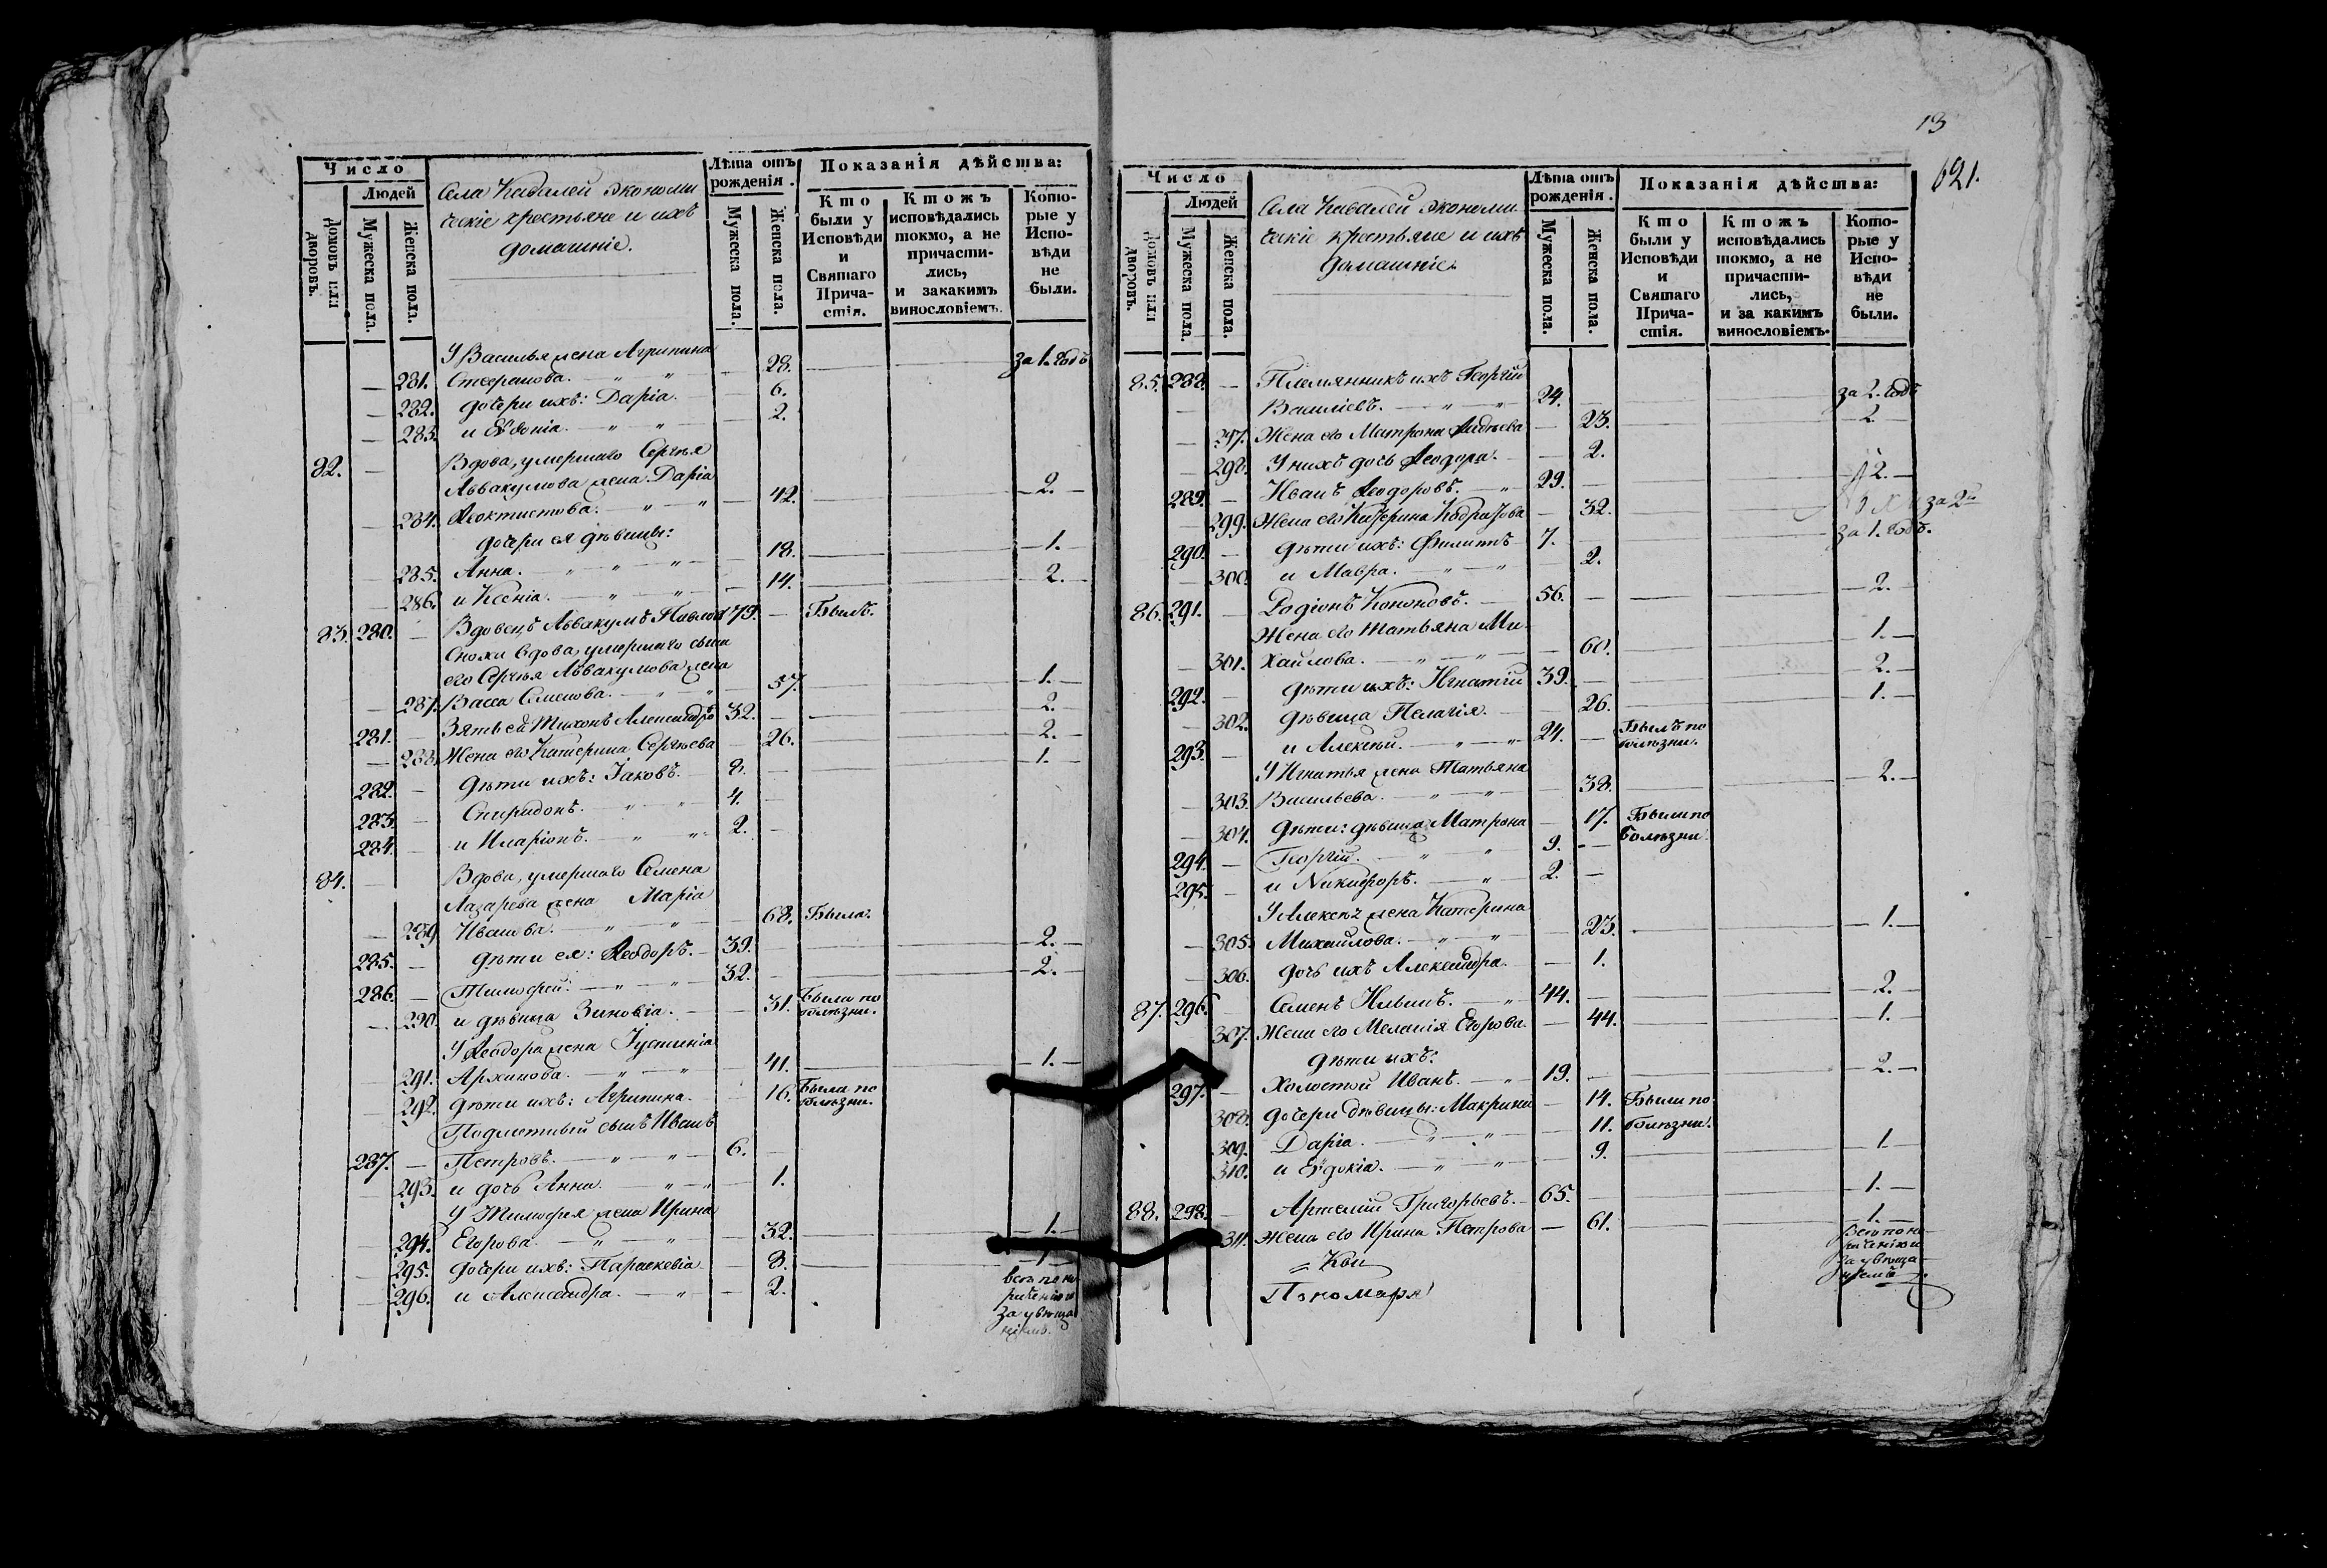 Число
Людей
Домовъ или дворовъ.
Мужеска пола.
Женска пола.
Села Кавалей экономи
ческіе крестьяне и ихъ
домашніе.
Лѣта отъ рожденія.
Мужеска пола.
Женска пола.
Показанія дѣйства:
Кто были у Исповѣди и Святаго Причастія.
Ктожъ исповѣдались токмо, а не причастились, и закакимъ винословіемъ.
Которые у Исповѣди не были.
У Василья жена Агрипина
281. Стефанова. 28. за 1. годъ
282. дочери ихъ: Дарія. 6.
283. и Евѳонія. 2.
82. Вдова, умершаго Сергѣя
Аввакумова жена Дарія
284. Ѳеоктистова. 42. 2.
дочери ея дѣвицы:
285. Анна. 18. 1.
286. и Ксенія. 14. 2.
83. 280. Вдовецъ Аввакумъ Павлов 79. Былъ.
Сноха вдова, умершаго сына
его Сергѣя Аввакумова жена
287. Васса Семенова. 57. 1.
281. Зять ея Тихонъ Александро 32. 2.
288. Жена его Катерина Сергѣева 26. 2.
282. дѣти ихъ: Іаковъ. 8. 1.
283. Спиридонъ. 4.
284. и Иларіонъ. 2.
84. Вдова, умершаго Семена
Лазарева жена Марія
289 Иванова. 68. Была.
285. дѣти ея: Ѳеодоръ. 39. 2.
286. Тимофей. 32. 2.
290. и дѣвица Зиновія. 31. Были по болѣзни.
У Ѳеодора жена Іустинія
291. Архипова. 41. 1.
292. дѣти ихъ: Агрипина. 16. Была по болѣзни.
Подлетный сынъ Иванъ
287. Петровъ. 6.
293. и дочь Анна. 1.
У Тимофея жена Ирина
294. Егорова. 32. 1.
295. дочери ихъ: Параскевія 8. 1
296. и Александра. 2.
всѣ по не
раченію и
за увѣща
ніемъ.
13
621.
Число
Людей
Домовъ или дворовъ.
Мужеска пола.
Женска пола.
Села Кавалей экономи
ческіе крестьяне и ихъ
домашніе.
Лѣта отъ рожденія.
Мужеска пола.
Женска пола.
Показанія дѣйства:
Кто были у Исповѣди и Святаго Причастія.
Ктожъ исповѣдались токмо, а не причастились, и за какимъ винословіемъ.
Которые у Исповѣди не были.
85. 288. Племянникъ ихъ Георгій
Василіевъ. 24. за 2. годъ
297. Жена его Матрона Авдѣева 23. 2
298. У нихъ дочь Ѳеодора. 2.
289. Иванъ Ѳеодоровъ. 29. 2.
299. Жена его Катерина Кодратова 32. за 2
290. дѣти ихъ: Филиппъ 7. за 1. годъ.
300. и Мавра. 2.
86. 291. Родіонъ Кононовъ. 56. 2.
Жена его Татьяна Ми
301. хайлова. 60. 1.
292. дѣти ихъ: Игнатій 39. 2.
302. дѣвица Пелагія. 26. 1.
293. и Алексѣй. 24. Былъ по болѣзни.
У Игнатья жена Татьяна
303. Васильева. 38. 2.
304. дѣти: дѣвица Матрона 17. Были по болѣзни.
294. Георгій. 9.
295. и Никифоръ. 2.
У Алексѣя жена Катерина
305. Михайлова. 23. 1.
306. дочь ихъ Александра. 1.
87. 296. Семенъ Ильинъ. 44. 2.
307. Жена его Меланія Егорова. 44. 1.
дѣти ихъ:
297. Холостой Иванъ. 19. 2.
308. дочери дѣвицы: Макрина 14. Были по
309. Дарія. 11. болѣзни.
310. и Евдокія. 9. 1
88. 298. Артемій Григорьевъ. 65. 1.
311. Жена его Ирина Петрова 61. 1.
Пономаря
всѣ по не
раченію и
за увѣща
ніемъ.